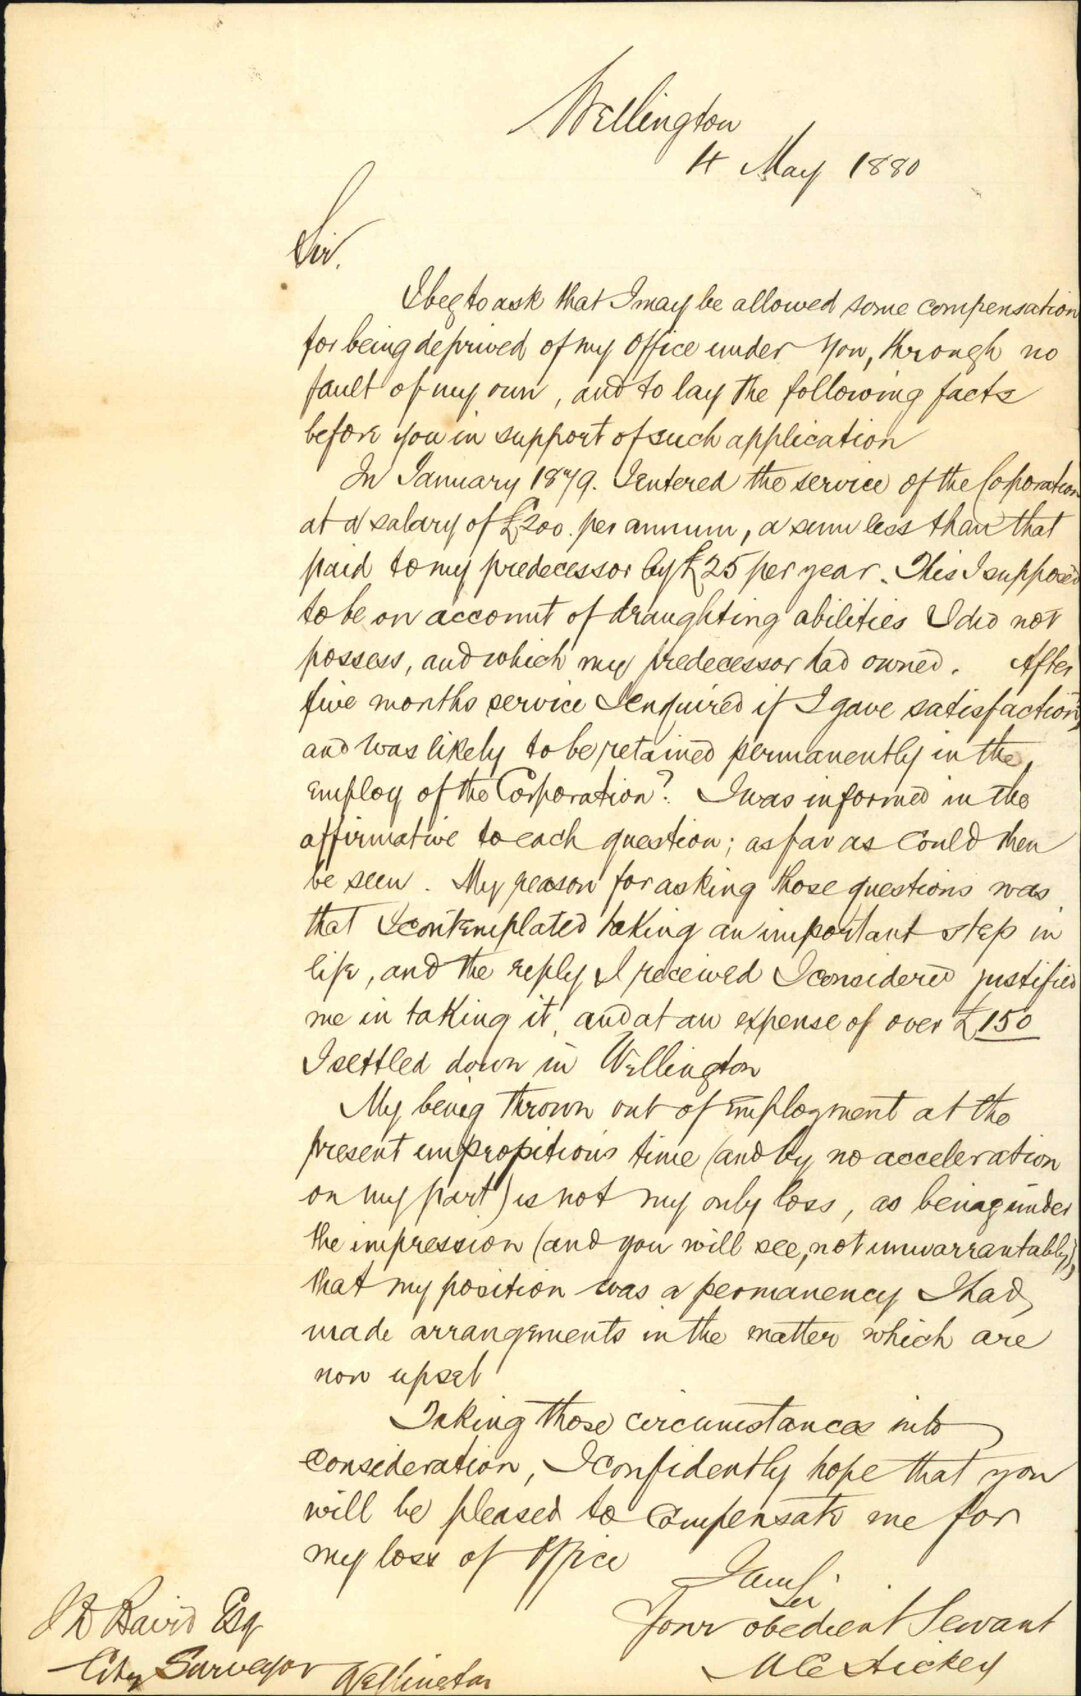 Wellington
4 May 1880
Sir.
I beg to ask that I may be allowed some compensation
for being deprived of my office under you, through no
fault of my own, and to lay the following facts
before you in support of such application
In January 1879. I entered the service of the Coporation
at a salary of £200. per annum, a sum less than that
paid to my predecessor by £25 per year. This I supposed
to be on account of draughting abilities I did not
possess, and which my predecessor had owned. After
five months service I enquired if I gave satisfaction,
and was likely to be retained permanently in the
employ of the Corporation? I was informed in the
affirmative to each question; as far as could then
be seen. My reason for asking those questions was
that I contemplated taking an important step in
life, and the reply I received I considered justified
me in taking it, and at an expense of over £150
I settled down in Wellington
My being thrown out of employment at the
present unpropitious time (and by no acceleration
on my part) is not my only loss, as being under
the impression (and you will see, not unwarrantably),
that my position was a permanency I had
made arrangements in the matter which are
now upset
Taking those circumstances into
consideration, I confidently hope that you
will be pleased to compensate me for
my loss of office
I am Sir
Your obedient Servant
J D Baird Esq
City Surveyor Wellington